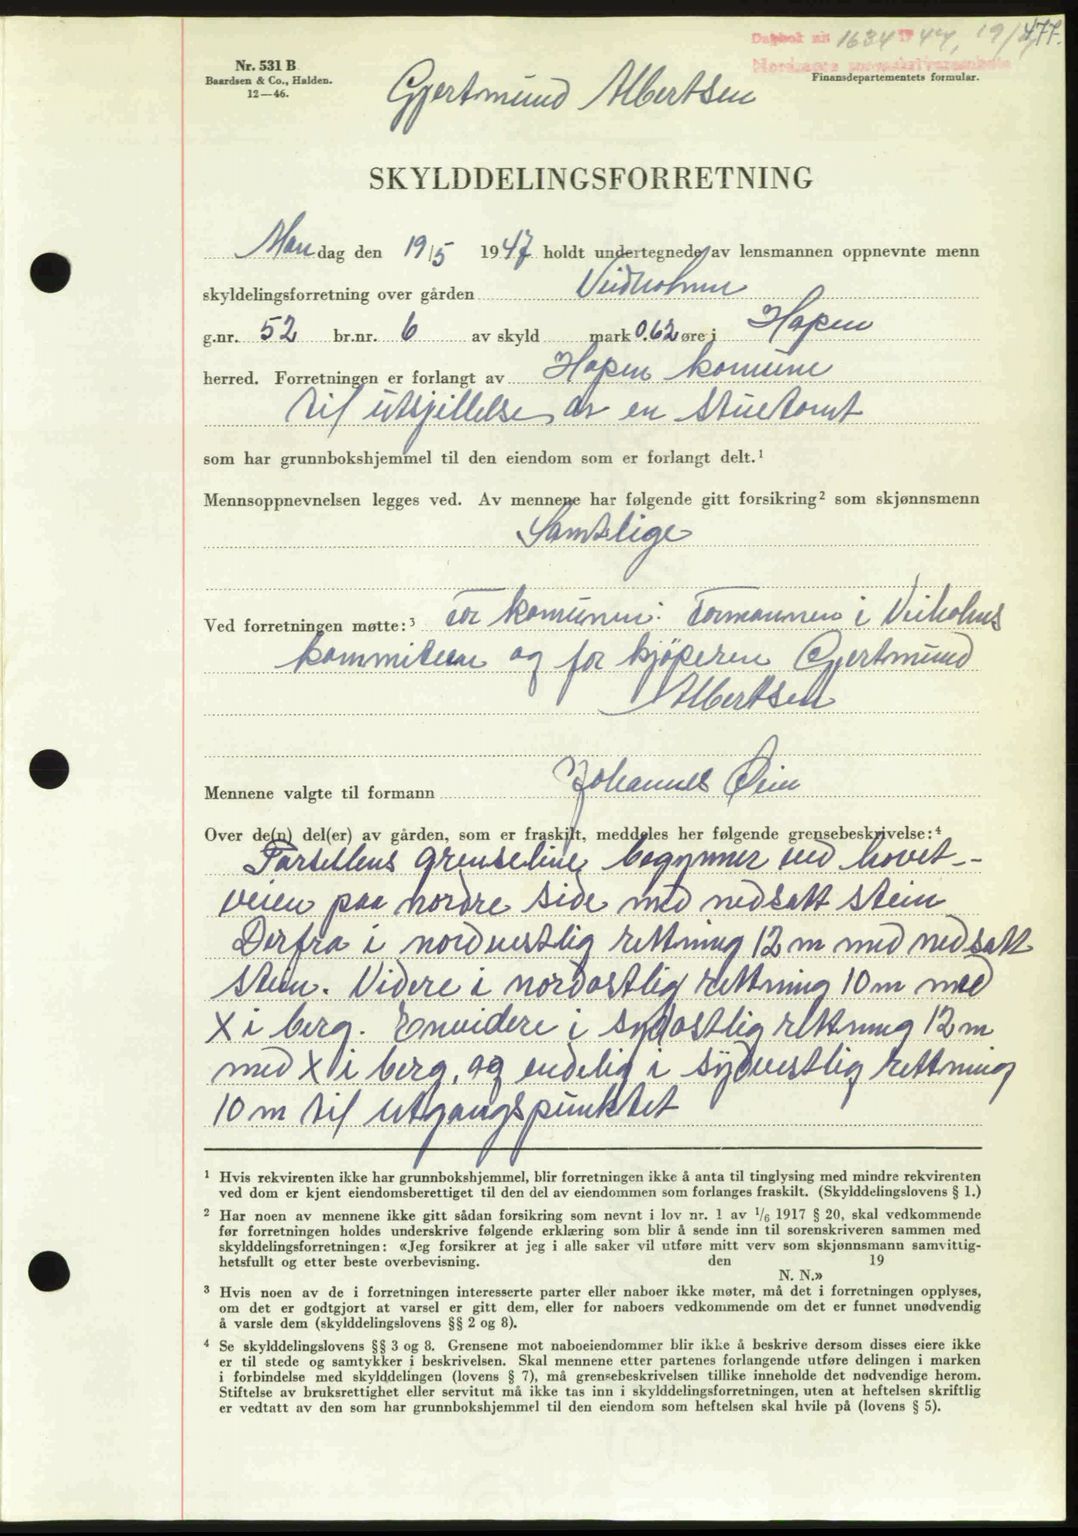 477.
Dagbok nr 1634 19 47, 19/
Nordmøre sorenskriverembete
Nr. 531 B
Baardsen & Co., Halden.
12—46.
Finansdepartementets formular.
Gjertmund Albertsen
SKYLDDELINGSFORRETNING
Man dag den 19/5 1947 holdt undertegnede av lensmannen oppnevnte menn
skyldelingsforretning over gården Veidholmen
g.nr. 52 br.nr. 6 av skyld mark 0.62 øre i Hopen
herred. Forretningen er forlangt av Hopen komune
til utsjillelse av en stuetomt
som har grunnbokshjemmel til den eiendom som er forlangt delt.¹
Mennsoppnevnelsen legges ved. Av mennene har følgende gitt forsikring² som skjønnsmenn
Samtlige
Ved forretningen møtte:³ For komunen: Formannen i Veiholms
kommiteen og for kjøperen Gjertmund
Albertsen
Mennene valgte til formann Johannes Øien
Over de(n) del(er) av gården, som er fraskilt, meddeles her følgende grensebeskrivelse:⁴
Parsellens grenseline begynner ved hovet-
veien paa nordre side med nedsatt stein
Derfra i nordvestlig rettning 12 m med nedsatt
stein. Videre i nordostlig rettning 10 m med
X i berg. Envidere i sydostlig rettning 12 m
med X i berg, og endelig i sydvestlig rettning
10 m til utgangspunktet
¹ Hvis rekvirenten ikke har grunnbokshjemmel, blir forretningen ikke å anta til tinglysing med mindre rekvirenten
ved dom er kjent eiendomsberettiget til den del av eiendommen som forlanges fraskilt. (Skylddelingslovens § 1.)
² Har noen av mennene ikke gitt sådan forsikring som nevnt i lov nr. 1 av 1/6 1917 § 20, skal vedkommende
før forretningen holdes underskrive følgende erklæring som blir å sende inn til sorenskriveren sammen med
skylddelingsforretningen: «Jeg forsikrer at jeg i alle saker vil utføre mitt verv som skjønnsmann samvittig-
hetsfullt og etter beste overbevisning. den 19
N. N.»
³ Hvis noen av de i forretningen interesserte parter eller naboer ikke møter, må det i forretningen opplyses,
om det er godtgjort at varsel er gitt dem, eller for naboers vedkommende om det er funnet unødvendig
å varsle dem (skylddelingslovens §§ 2 og 8).
⁴ Se skylddelingslovens §§ 3 og 8. Grensene mot naboeiendommer blir ikke å beskrive dersom disses eiere ikke
er til stede og samtykker i beskrivelsen. Skal mennene etter partenes forlangende utføre delingen i marken
i forbindelse med skylddelingen (lovens § 7), må grensebeskrivelsen tillike inneholde det nødvendige herom.
Stiftelse av bruksrettighet eller servitut må ikke tas inn i skylddelingsforretningen, uten at heftelsen skriftlig
er vedtatt av den som har grunnbokshjemmel til den eiendom som heftelsen skal hvile på (lovens § 5).